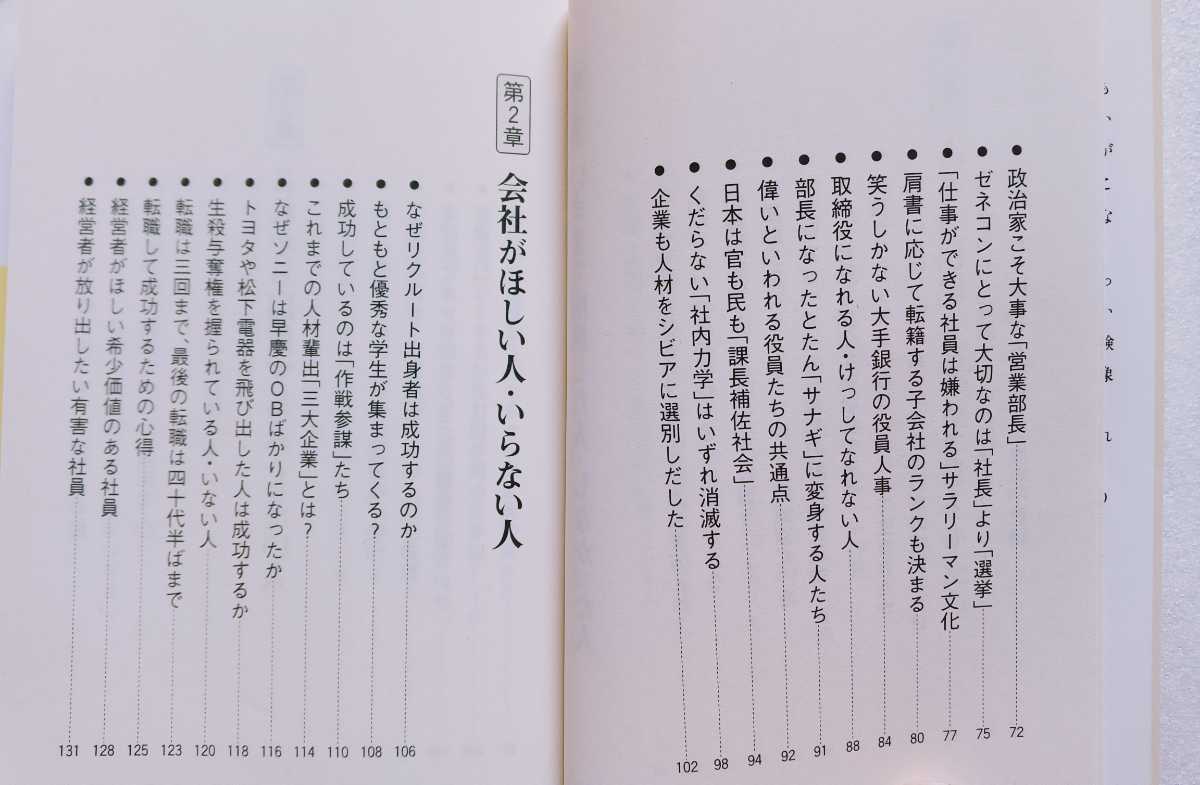 ●政治家こそ大事な「営業部長」 72
●ゼネコンにとって大切なのは「社長」より「選挙」 75
●「仕事ができる社員は嫌われる」サラリーマン文化 77
●肩書に応じて転籍する子会社のランクも決まる 80
●笑うしかない大手銀行の役員人事 84
●取締役になれる人・けっしてなれない人 88
●部長になったとたん「サナギ」に変身する人たち 91
●偉いといわれる役員たちの共通点 92
●日本は官も民も「課長補佐社会」 94
●くだらない「社内力学」はいずれ消滅する 98
●企業も人材をシビアに選別しだした 102
第2章 会社がほしい人・いらない人
●なぜリクルート出身者は成功するのか 106
●もともと優秀な学生が集まってくる? 108
●成功しているのは「作戦参謀」たち 110
●これまでの人材輩出「三大企業」とは? 114
●なぜソニーは早慶のOBばかりになったか 116
●トヨタや松下電器を飛び出した人は成功するか 118
●生殺与奪権を握られている人・いない人 120
●転職は三回まで、最後の転職は四十代半ばまで 123
●転職して成功するための心得 125
●経営者がほしい希少価値のある社員 128
●経営者が放り出したい有害な社員 131